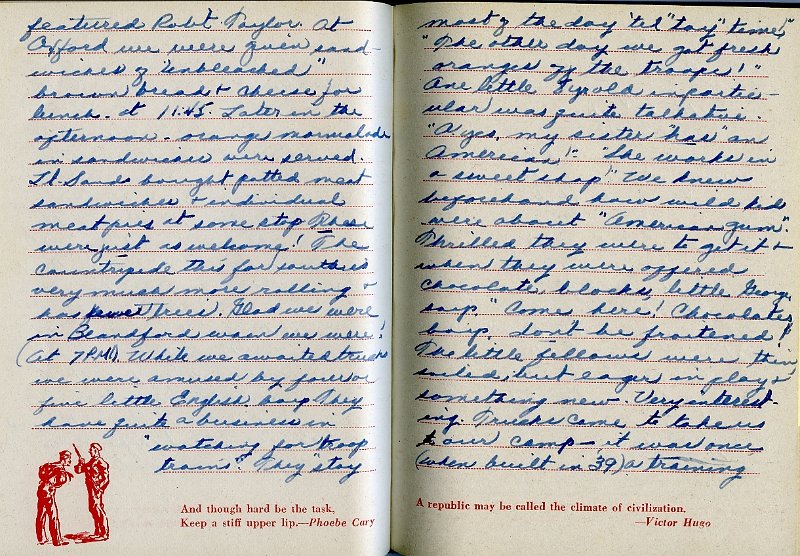 featured Robt. Taylor. At
Oxford we were given sand-
wiches of "unbleached"
brown bread & cheese for
lunch. at 11:45. Later in the
afternoon - orange marmalade
in sandwiches were served.
Lt. Sands bought potted meat
sandwiches & individual
meat pies at some stop These
were just as welcome! The
countryside this far south is
very much more rolling &
has fewer trees. Glad we were
in Blandford when we were!
(At 7PM). While we awaited trucks
we were amused by four or
five little English boys They
have quite a business in
"watching for troop
trains". They stay
And though hard be the task,
Keep a stiff upper lip.—Phoebe Cary
most of the day 'til "tay" time."
"The other day we got fresh
oranges off the troops!"
One little 7 yr old in partic-
ular was quite talkative.
"Ayes, my sister 'has' an
American!" - "She works in
a sweet shop" We knew
beforehand how wild kids
were about "American gum".
Thrilled they were to get it &
when they were offered
chocolate blocks, little George
says, "Comes here! Chocolates
boys, don't be froitened!
The little fellows were thin
soiled, but eager in play &
something new. Very interest-
ing. Trucks came to take us
to our camp - it was once
(when built in 39) a training
A republic may be called the climate of civilization.
—Victor Hugo